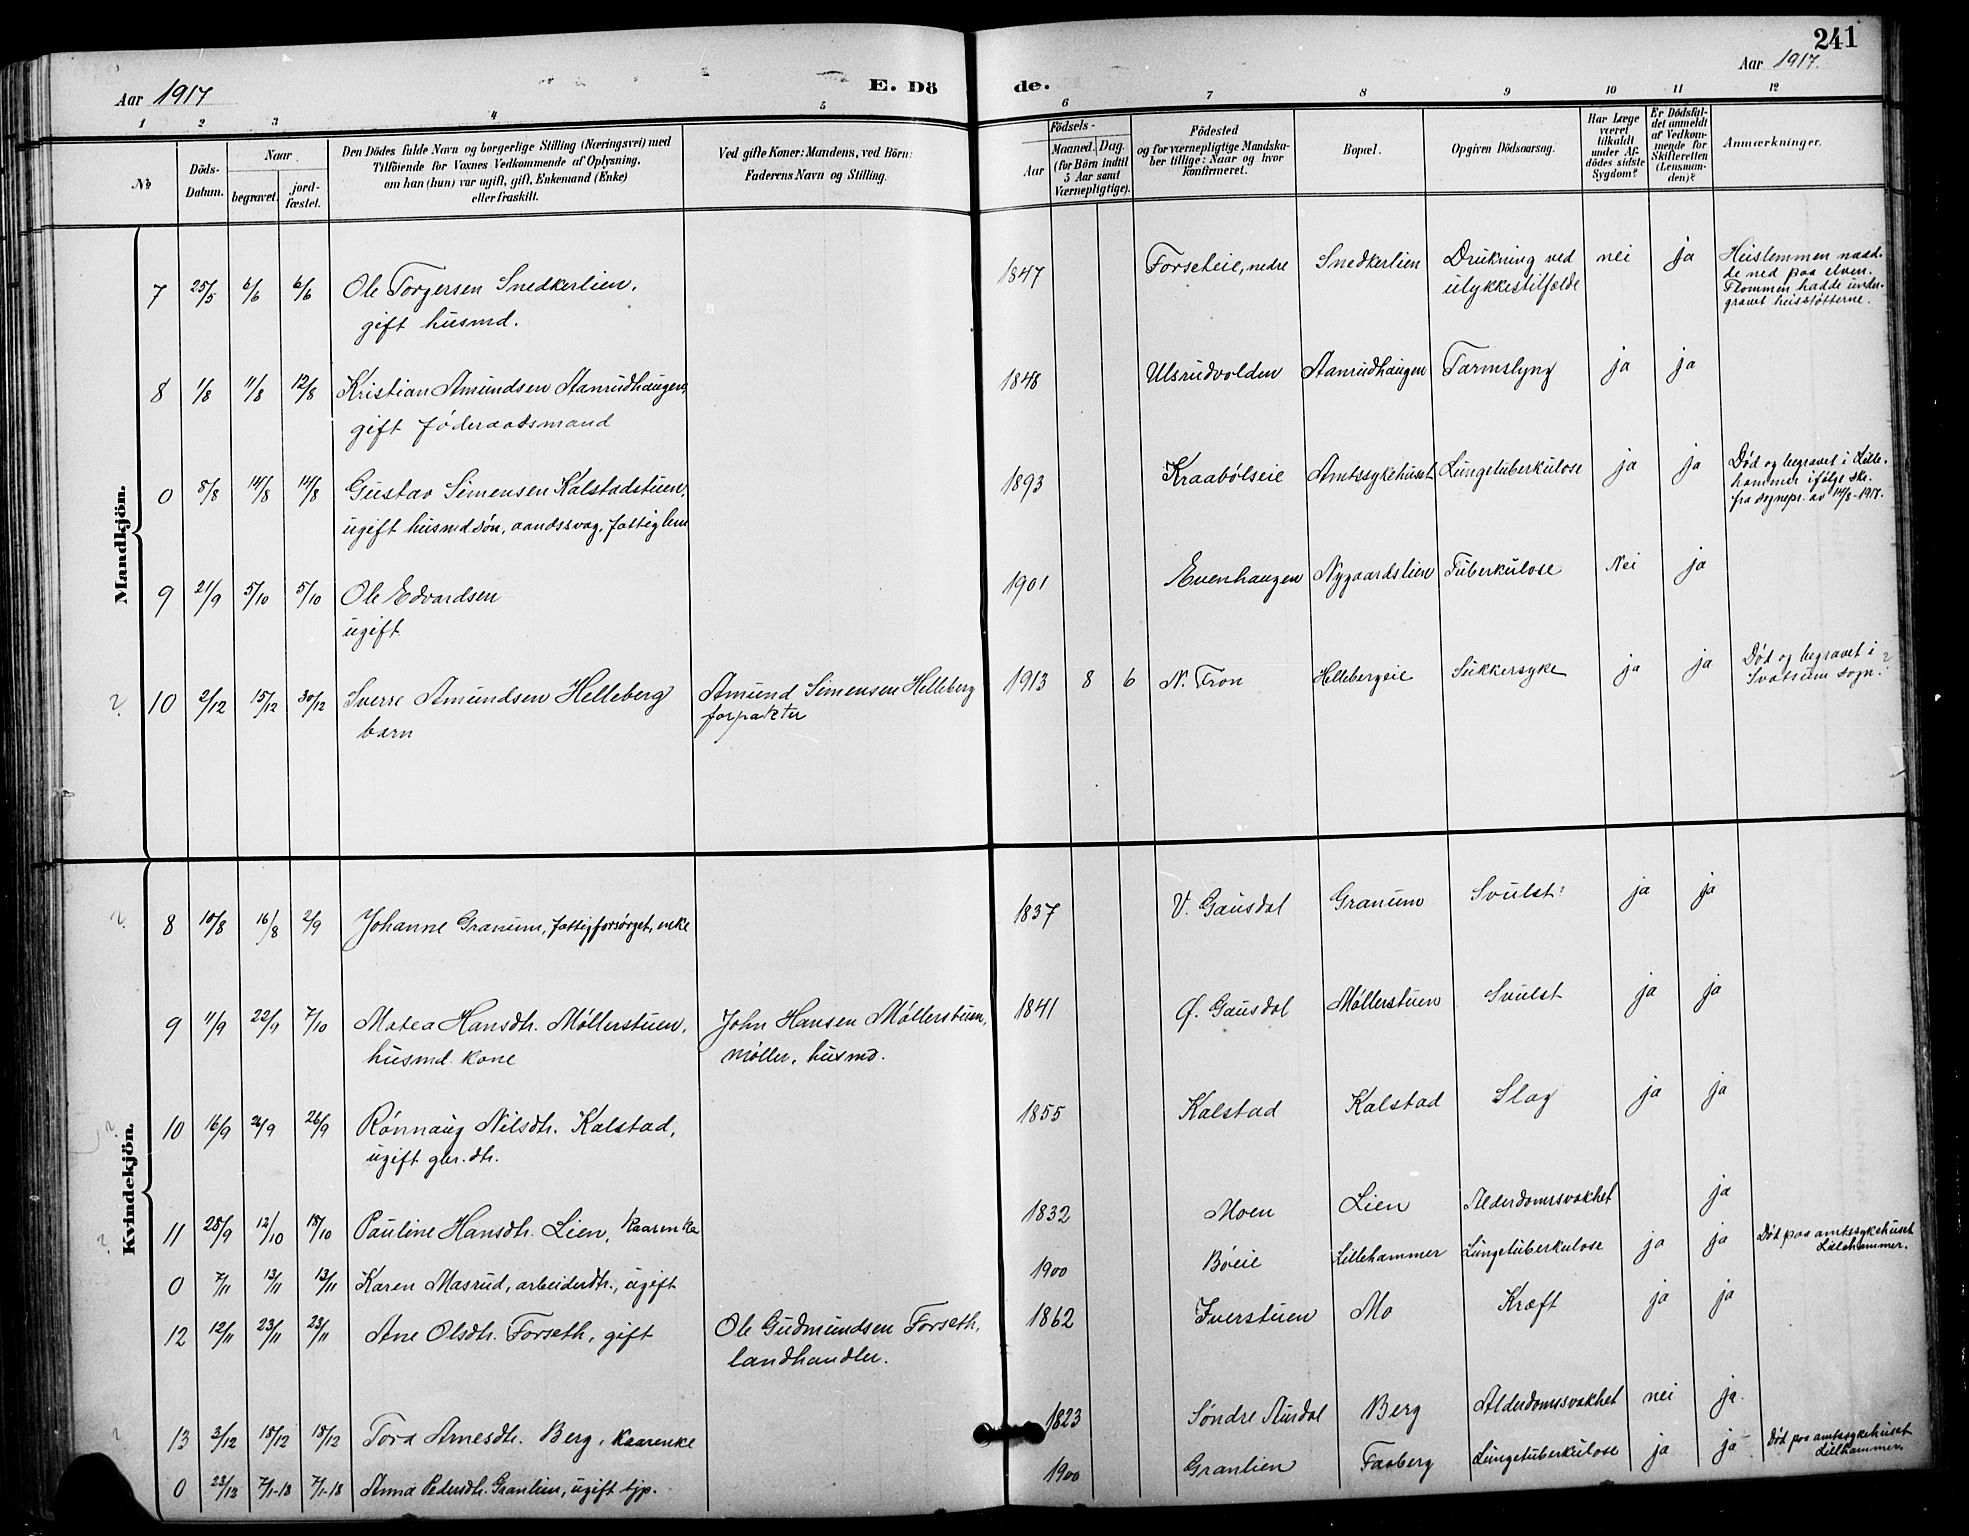 241
Aar 1917
E. Dö
de.
Aar 1917.
1 2 3 4 5 6 7 8 9 10 11 12
No
Döds-Datum.
Naar
begravet.
jord-fæstet.
Den Dödes fulde Navn og borgerlige Stilling (Næringsvei) med
Tilföiende for Voxnes Vedkommende af Oplysning,
om han (hun) var ugift, gift, Enkemand (Enke)
eller fraskilt.
Ved gifte Koner: Mandens, ved Börn:
Faderens Navn og Stilling.
Födsels-
Aar
Maaned. Dag.
(for Börn indtil
5 Aar samt
Værnepligtige).
Födested
og for værnepligtige Mandska-
ber tillige: Naar og hvor
konfirmeret.
Bopæl.
Opgiven Dödsaarsag.
Har Læge
været
tilkaldt
under Af-
dödes sidste
Sygdom?
Er Dödsfal-
det anmeldt
af Vedkom-
mende for
Skifteretten
(Lensman-
den)?
Anmærkninger.
Mandkjön.
7 25/5 6/6 6/6 Ole Torgersen Snedkerlien, 1847 Forseteie, nedre Snedkerlien Drukning ved nei ja Heislemmen raad-
gift husmd. ulykkestilfælde
de ned paa elven.
Flommen hadde under-
gravet heisstøtterne.
8 1/8 11/8 12/8 Kristian Amundsen Stanrudhaugen, 1848 Ulsrudvolden Stanrudhaugen Tarmslyng ja ja
gift føderaadsmand
0 8/8 14/8 14/8 Gustav Simensen Kalstadstuen, 1893 Kraabølseie Amtssykehuset Lungetuberkulose ja ja Død og begravet i Lille-
ugift husmdsøn, aandssvag, fattiglem
hammer ifølge skr.
fra sognepr. av 14/8-1917.
9 21/9 5/10 5/10 Ole Edvardsen 1901 Evenhaugen Nygaardslien Tuberkulose Nei ja
ugift
? 10 2/12 15/12 30/12 Sverre Amundsen Helleberg Amund Simensen Helleberg 1913 8 6 N. Fron Hellebergeie Sukkersyke ja ja Død og begravet i
barn forpakter
Svatsum sogn. ?
Kvindekjön.
? 8 10/8 16/8 2/9 Johanne Granum, fattigforsørget, enke 1837 V. Gausdal Granum Svulst ja ja
9 11/9 22/9 7/10 Matea Hansdtr. Møllerstuen, John Hansen Møllerstuen, 1841 Ø. Gausdal Møllerstuen Svulst ja ja
husmd. kone møller, husmd.
? 10 16/9 26/9 26/9 Rønnaug Nilsdtr. Kalstad, 1855 Kalstad Kalstad Slag ja ja
ugift gbr. dtr.
? 11 28/9 12/10 18/10 Pauline Hansdtr. Lien, kaarenke 1832 Moen Lien Alderdomssvakhet ja
0 7/11 13/11 13/11 Karen Masrud, arbeiderdtr., ugift 1900 Bøeie Lillehammer Lungetuberkulose ja ja Død paa amtssykehuset
Lillehammer.
12 12/11 23/11 23/11 Ane Olsdtr. Forseth, gift Ole Gudmundsen Forseth, 1862 Iverstuen Mo Kræft ja ja
landhandler.
? 13 3/12 18/12 18/12 Tora Arnesdtr. Berg, kaarenke 1823 Søndre Aurdal Berg Alderdomssvakhet nei ja
0 23/12 7/1-18 7/1-18 Anna Pedersdtr. Granlien, ugift tjp. 1900 Granlien Faaberg Lungetuberkulose ja ja Død paa amtssykehuset
Lillehammer.